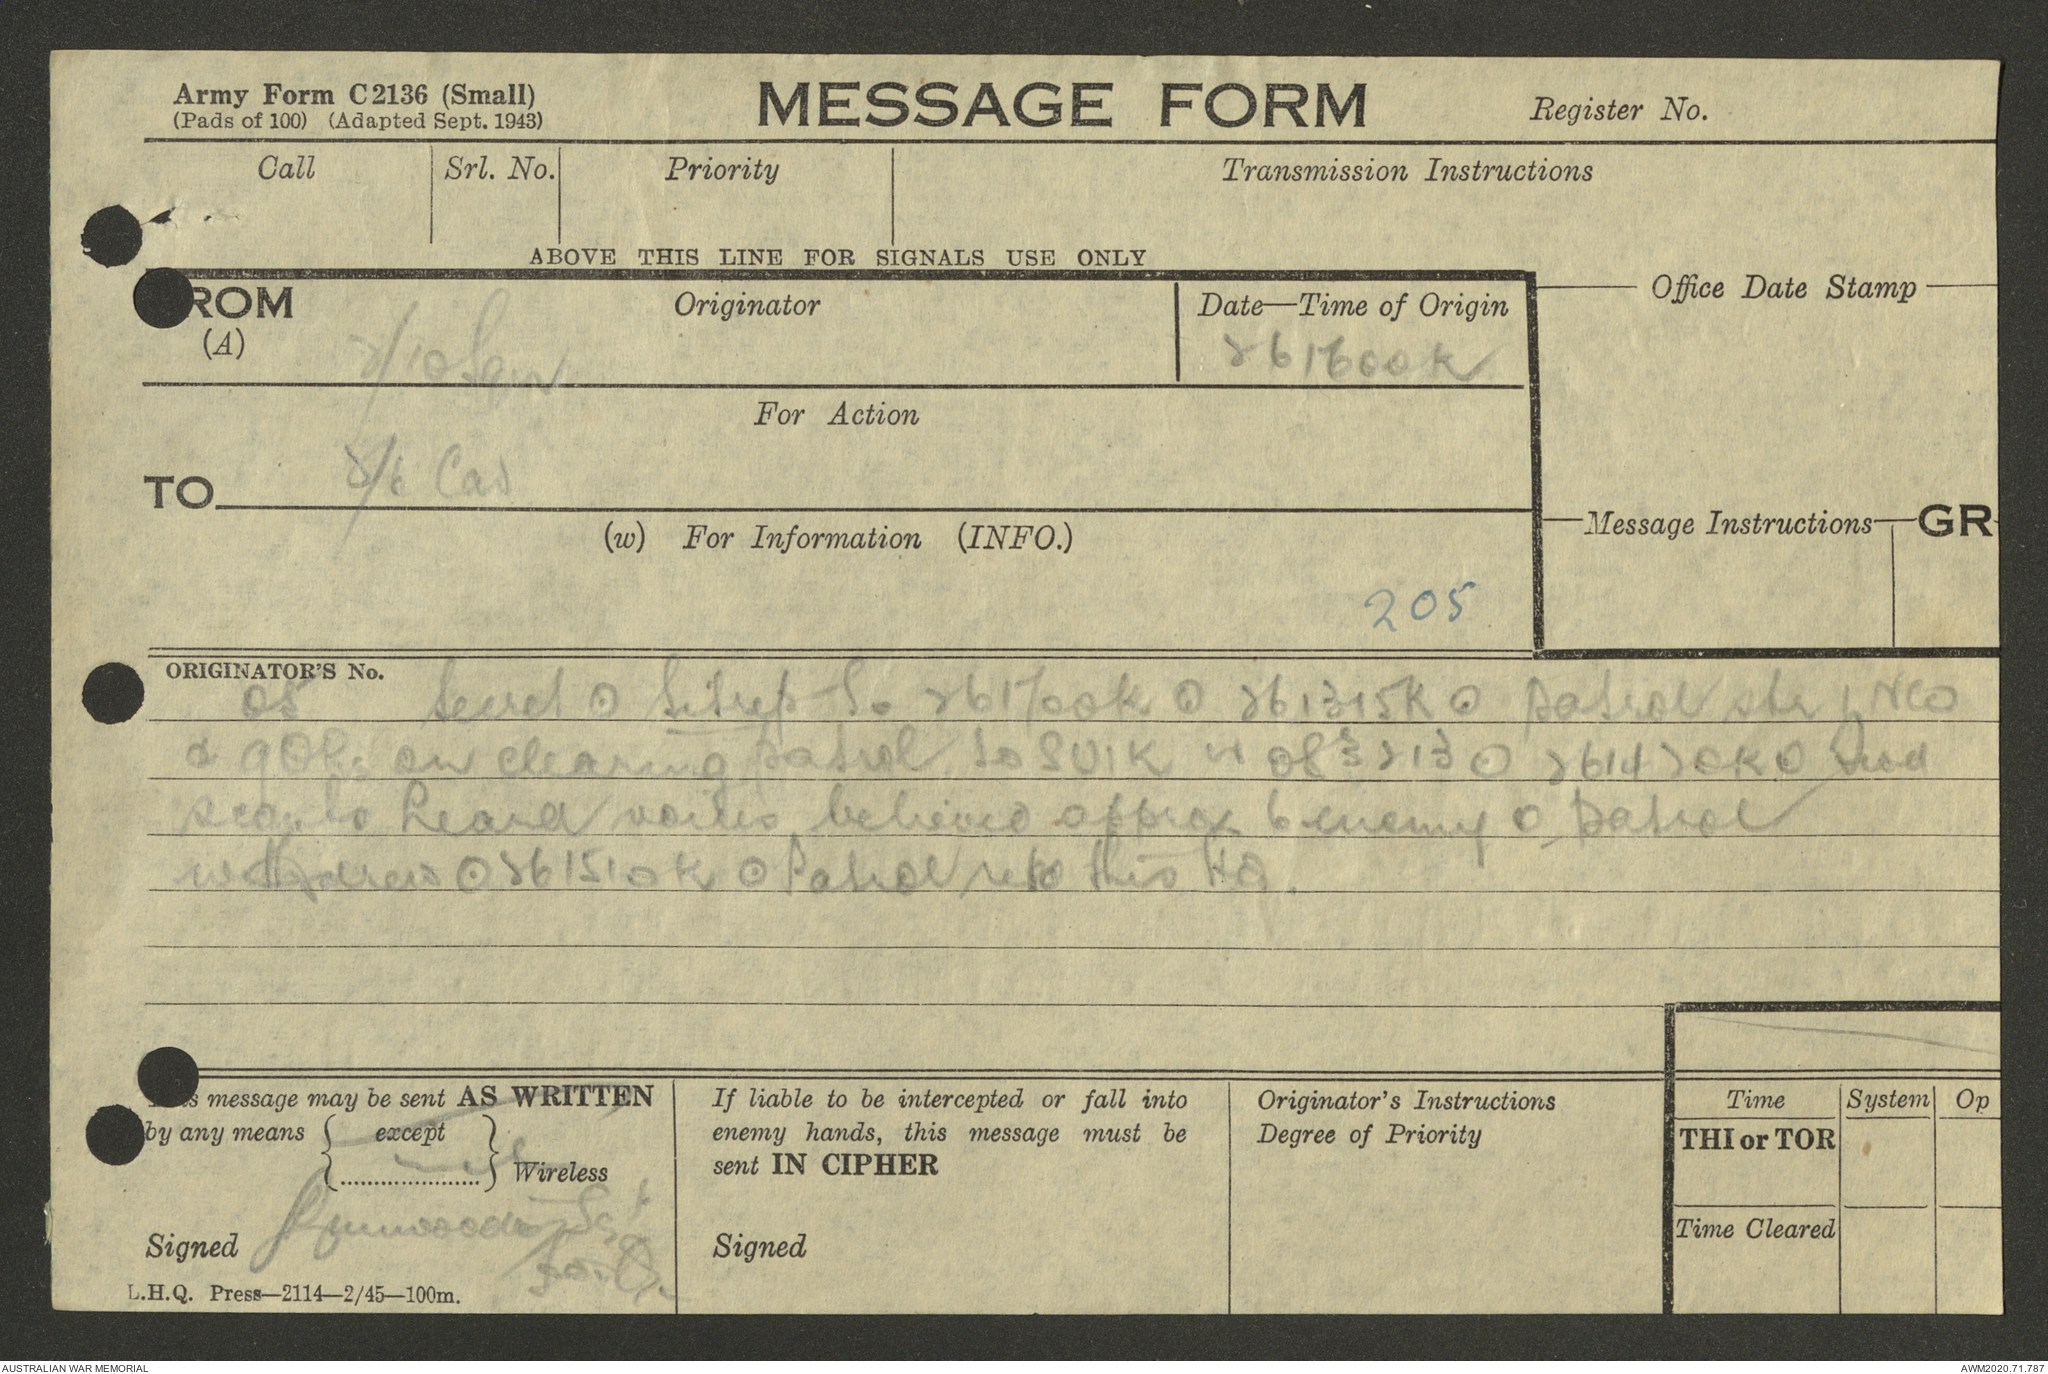 Army Form C2136 (Small)
(Pads of 100) (Adapted Sept. 1943)
MESSAGE FORM
Register No.
Call
Srl. No.
Priority
Transmission Instructions
ABOVE THIS LINE FOR SIGNALS USE ONLY
ROM
(A)
Originator
Date—Time of Origin
Office Date Stamp
2/10
261600K
For Action
TO
2/6 Cav
(w) For Information (INFO.)
Message Instructions
GR
205
ORIGINATOR'S No.
05 Secret O Sitrep to 261700K O 261315K O Patrol str 1 NCO
& 9 ORs on clearing patrol to 2613 O 261420K O
scouts heard voices believed approx 6 enemy O patrol
withdrew O 261510K O Patrol this HQ.
s message may be sent AS WRITTEN
by any means { except } Wireless
Signed
L.H.Q. Press—2114—2/45—100m.
If liable to be intercepted or fall into
enemy hands, this message must be
sent IN CIPHER
Signed
Originator's Instructions
Degree of Priority
Time
System
Op
THI or TOR
Time Cleared
AUSTRALIAN WAR MEMORIAL
AWM2020.71.787